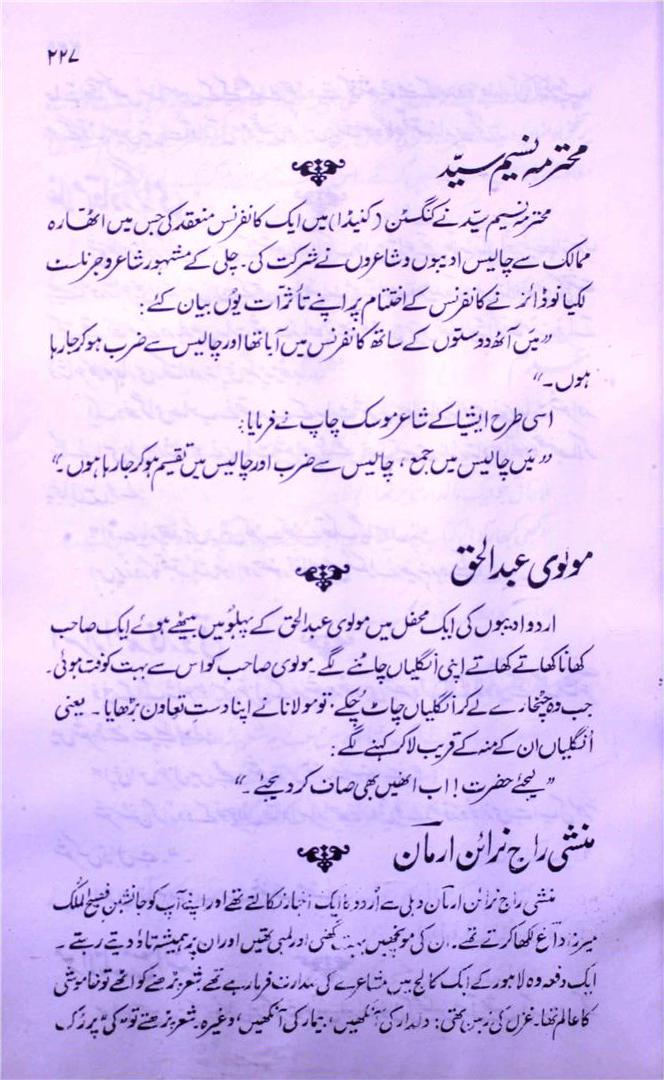 ۲۲۷
محترمہ نسیم سیّد
محترمہ نسیم سیّد نے کنگسٹن (کنیڈا) میں ایک کانفرنس منعقد کی جس میں اٹھارہ
ممالک سے چالیس ادیبوں و شاعروں نے شرکت کی۔ چلی کے مشہور شاعر و جرنلسٹ
لگیانوڈائز نے کانفرنس کے اختتام پر اپنے تأثرات یوں بیان کئے:
”میں آٹھ دوستوں کے ساتھ کانفرنس میں آیا تھا اور چالیس سے ضرب ہو کر جا رہا
ہوں۔“
اسی طرح ایشیا کے شاعر موسک چاپ نے فرمایا:
”میں چالیس میں جمع، چالیس سے ضرب اور چالیس میں تقسیم ہو کر جا رہا ہوں۔“
مولوی عبدالحق
اردو ادیبوں کی ایک محفل میں مولوی عبدالحق کے پہلو میں بیٹھے ہوئے ایک صاحب
کھانا کھاتے کھاتے اپنی انگلیاں چاٹنے لگے۔ مولوی صاحب کو اس سے بہت کوفت ہوئی۔
جب وہ چٹخارے لے کر انگلیاں چاٹ چکے، تو مولانا نے اپنا دستِ تعاون بڑھایا۔ یعنی
اُنگلیاں ان کے منہ کے قریب لا کر کہنے لگے:
”لیجئے حضرت! اب انھیں بھی صاف کر دیجئے۔“
منشی راج نرائن ارمان
منشی راج نرائن ارمان دہلی سے اُردو کا ایک اخبار نکالتے تھے اور اپنے آپ کو جانشین فصیح الملک
میرزا داغ لکھا کرتے تھے۔ ان کی مونچھیں بہت گھنی اور لمبی تھیں اور ان پر ہمیشہ تاؤ دیتے رہتے۔
ایک دفعہ وہ لاہور کے ایک کالج میں مشاعرے کی صدارت فرما رہے تھے شعر پڑھنے کو اٹھے تو خاموشی
کا عالم تھا۔ غزل کی زمین تھی: دلدار کی آنکھیں، بیمار کی آنکھیں، وغیرہ۔ شعر پڑھتے تو "کی" پر رُک